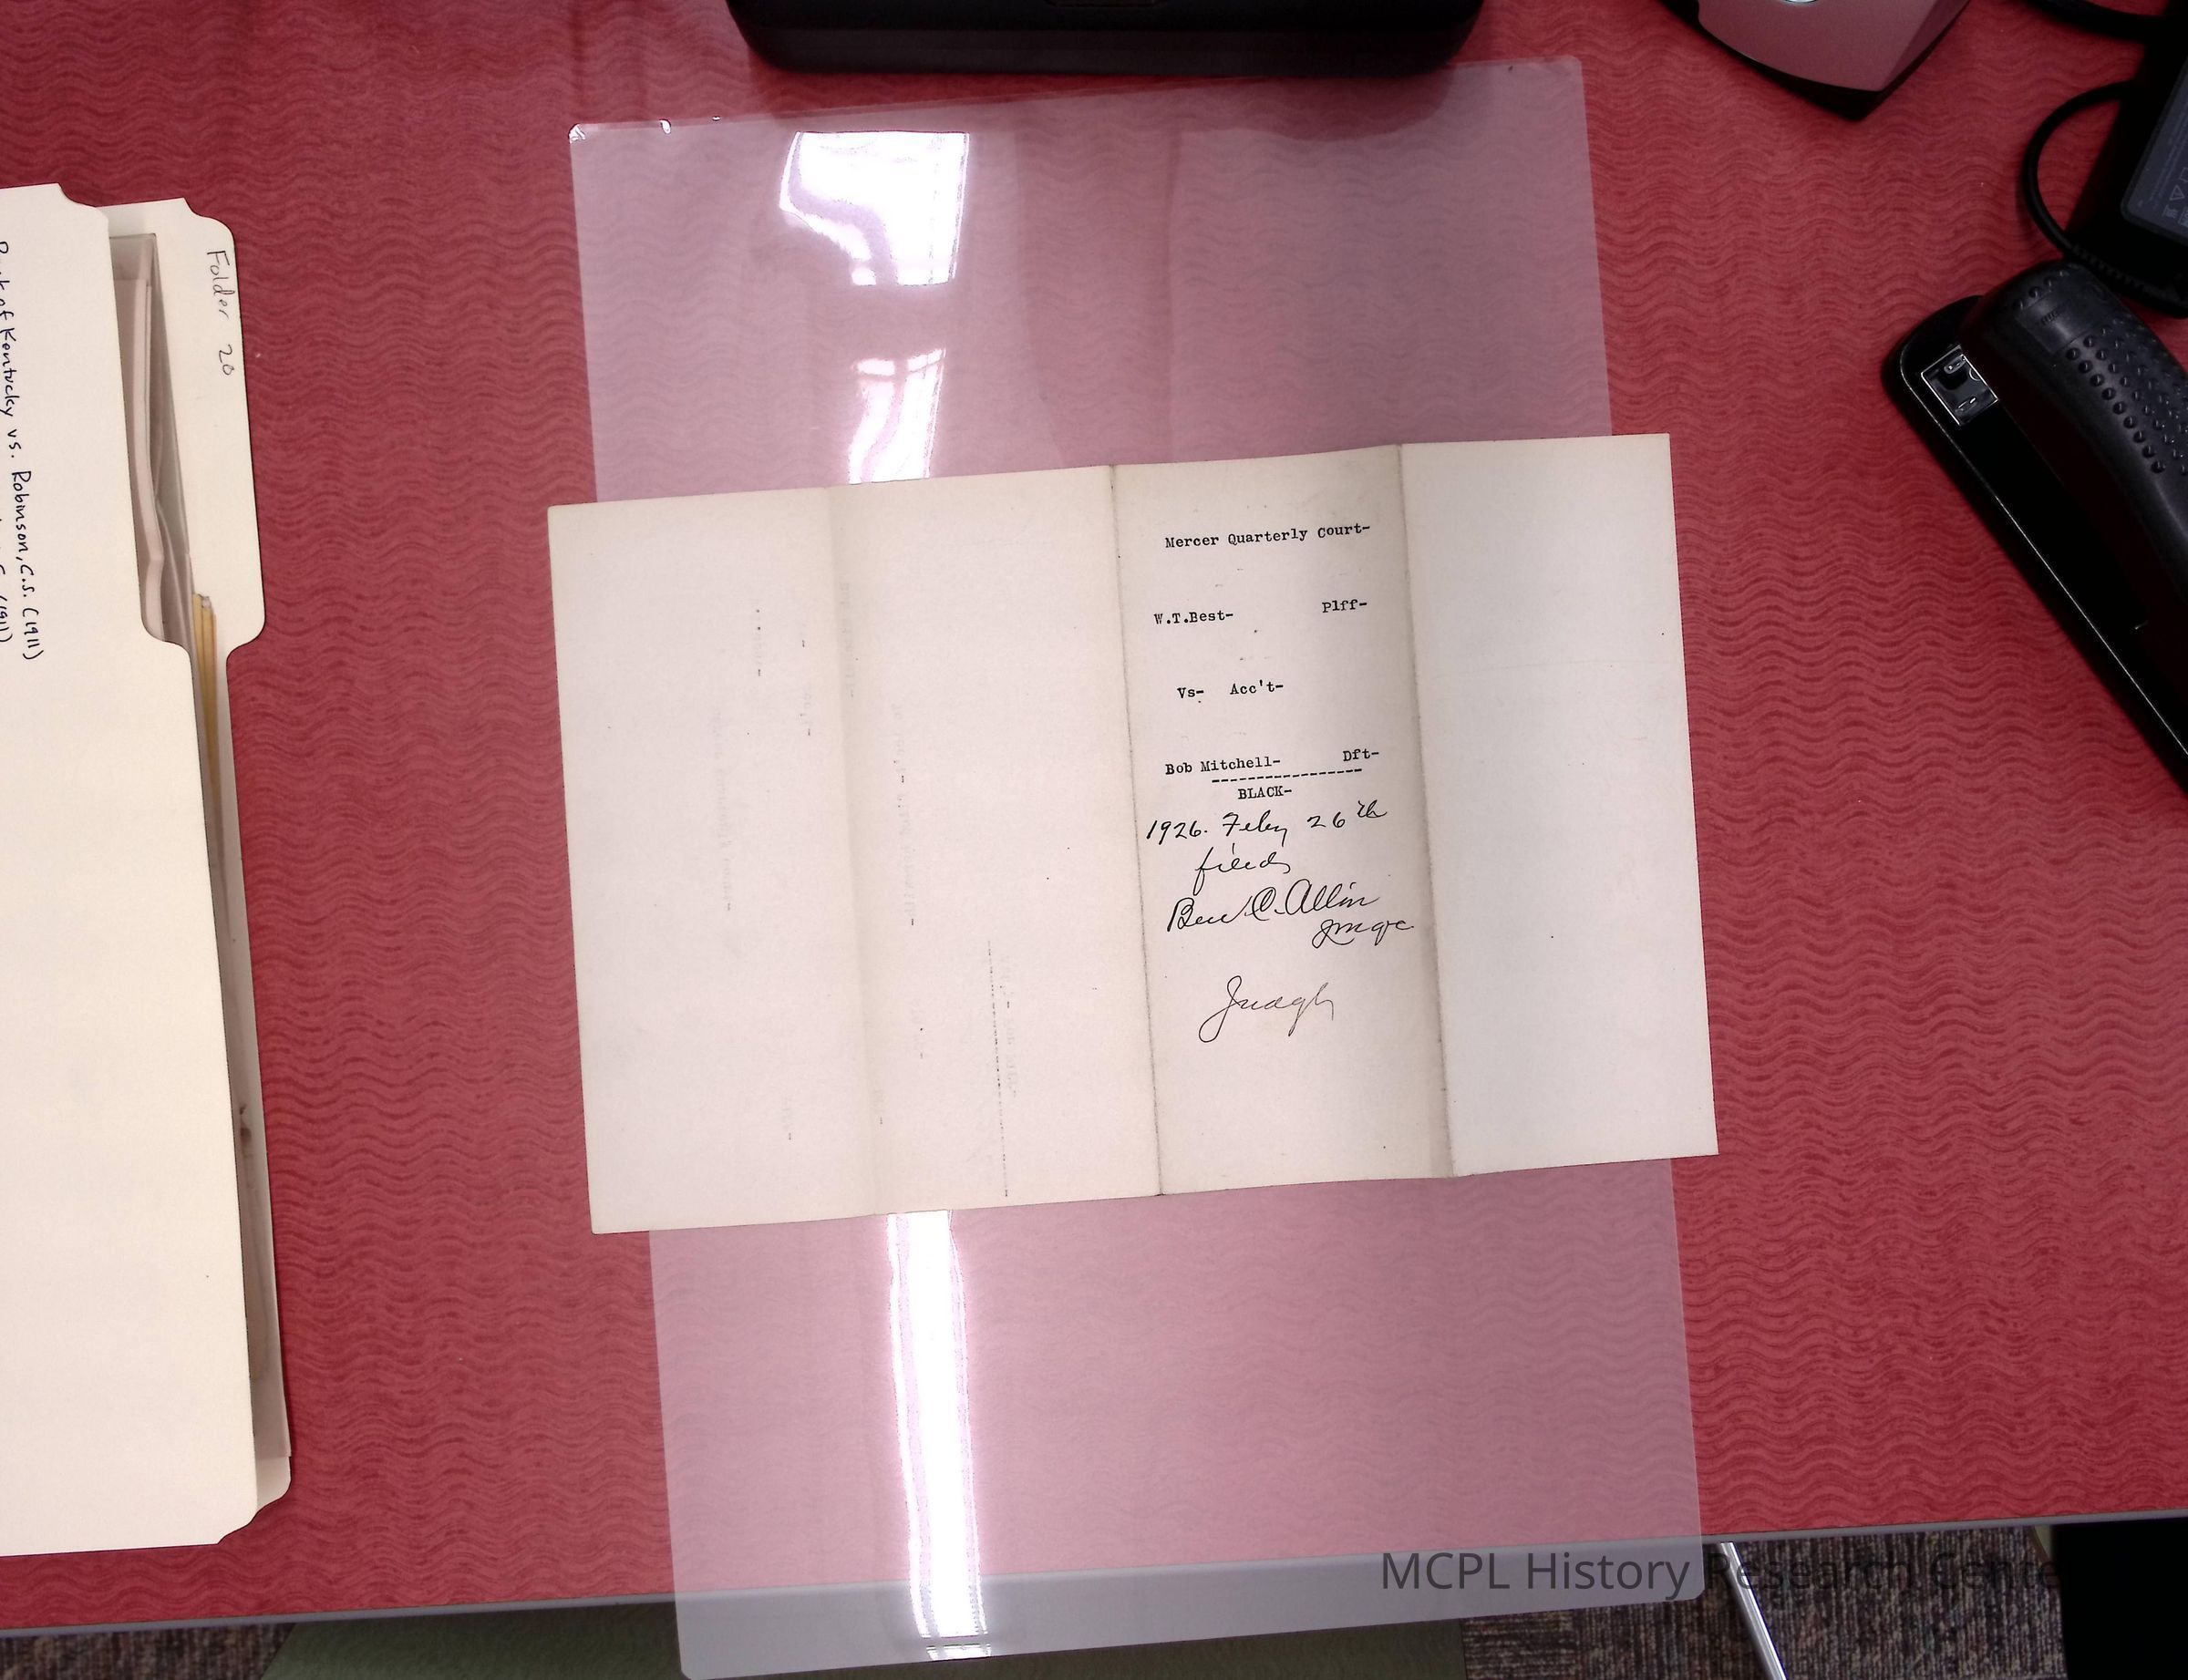 Folder 20
of Kentucky vs. Robinson, C.S. (1911)
(1911)
Mercer Quarterly Court-
W.T.Best- Plff-
Vs- Acc't-
Bob Mitchell- Dft-
-----------------
BLACK-
1926. Feby 26th
filed
Ben C. Allin
MCPL History Research Cente